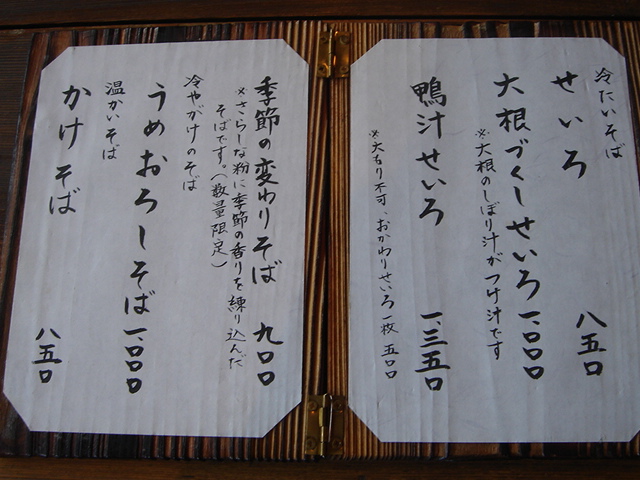 冷たいそば
せいろ 八五〇
大根づくしせいろ 一、〇〇〇
※大根のしぼり汁がつけ汁です
鴨汁せいろ 一、三五〇
※大もり不可、おかわりせいろ一枚 五〇〇
季節の変わりそば 九〇〇
※さらしな粉に季節の香りを練り込んだ
そばです。(数量限定)
冷やがけのそば
うめおろしそば 一、〇〇〇
温かいそば
かけそば 八五〇